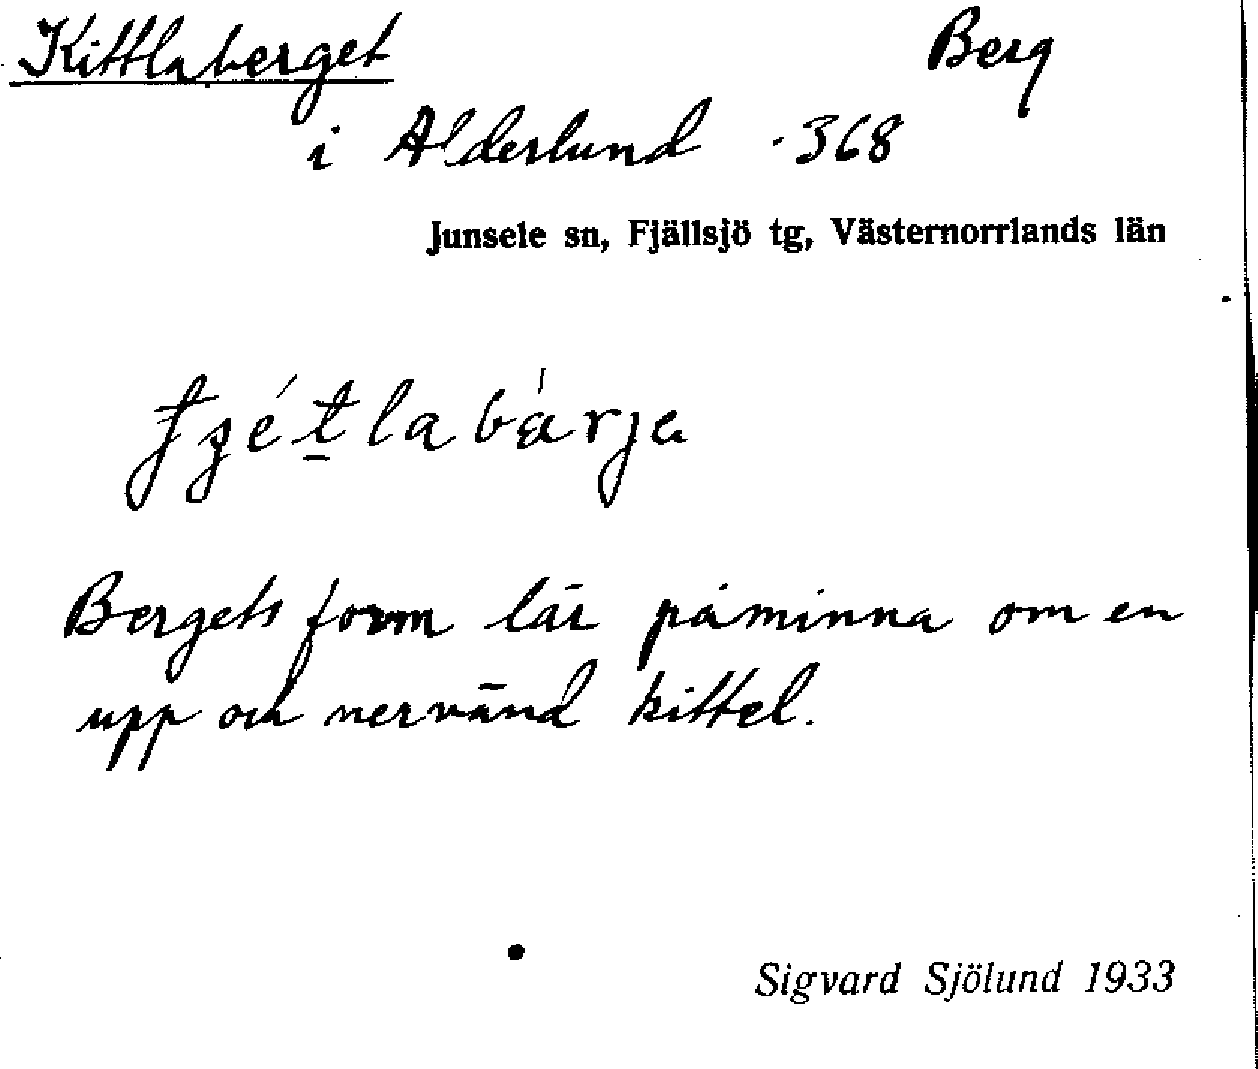 Kittlaberget Berg
i Alderlund -368
Junsele sn, Fjällsjö tg, Västernorrlands län
Bergets form lär påminna om en
upp och nervänd kittel.
Sigvard Sjölund 1933